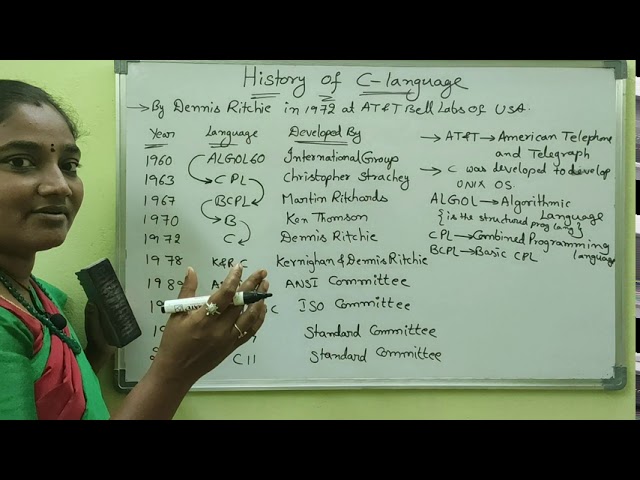 History of C-language
→ By Dennis Ritchie in 1972 at AT&T Bell Labs of USA.
Year Language Developed By
1960 ALGOL60 International Group
1963 CPL Christopher Strachey
1967 BCPL Martin Ritchards
1970 B Ken Thomson
1972 C Dennis Ritchie
1978 K&R C Kernighan & Dennis Ritchie
198 A ANSI Committee
19 C ISO Committee
Standard Committee
C11 Standard Committee
→ AT&T → American Telephone
and Telegraph
→ C was developed to develop
UNIX OS.
ALGOL → Algorithmic
Language
{is the structured prog lang}
CPL → Combined Programming
language
BCPL → Basic CPL